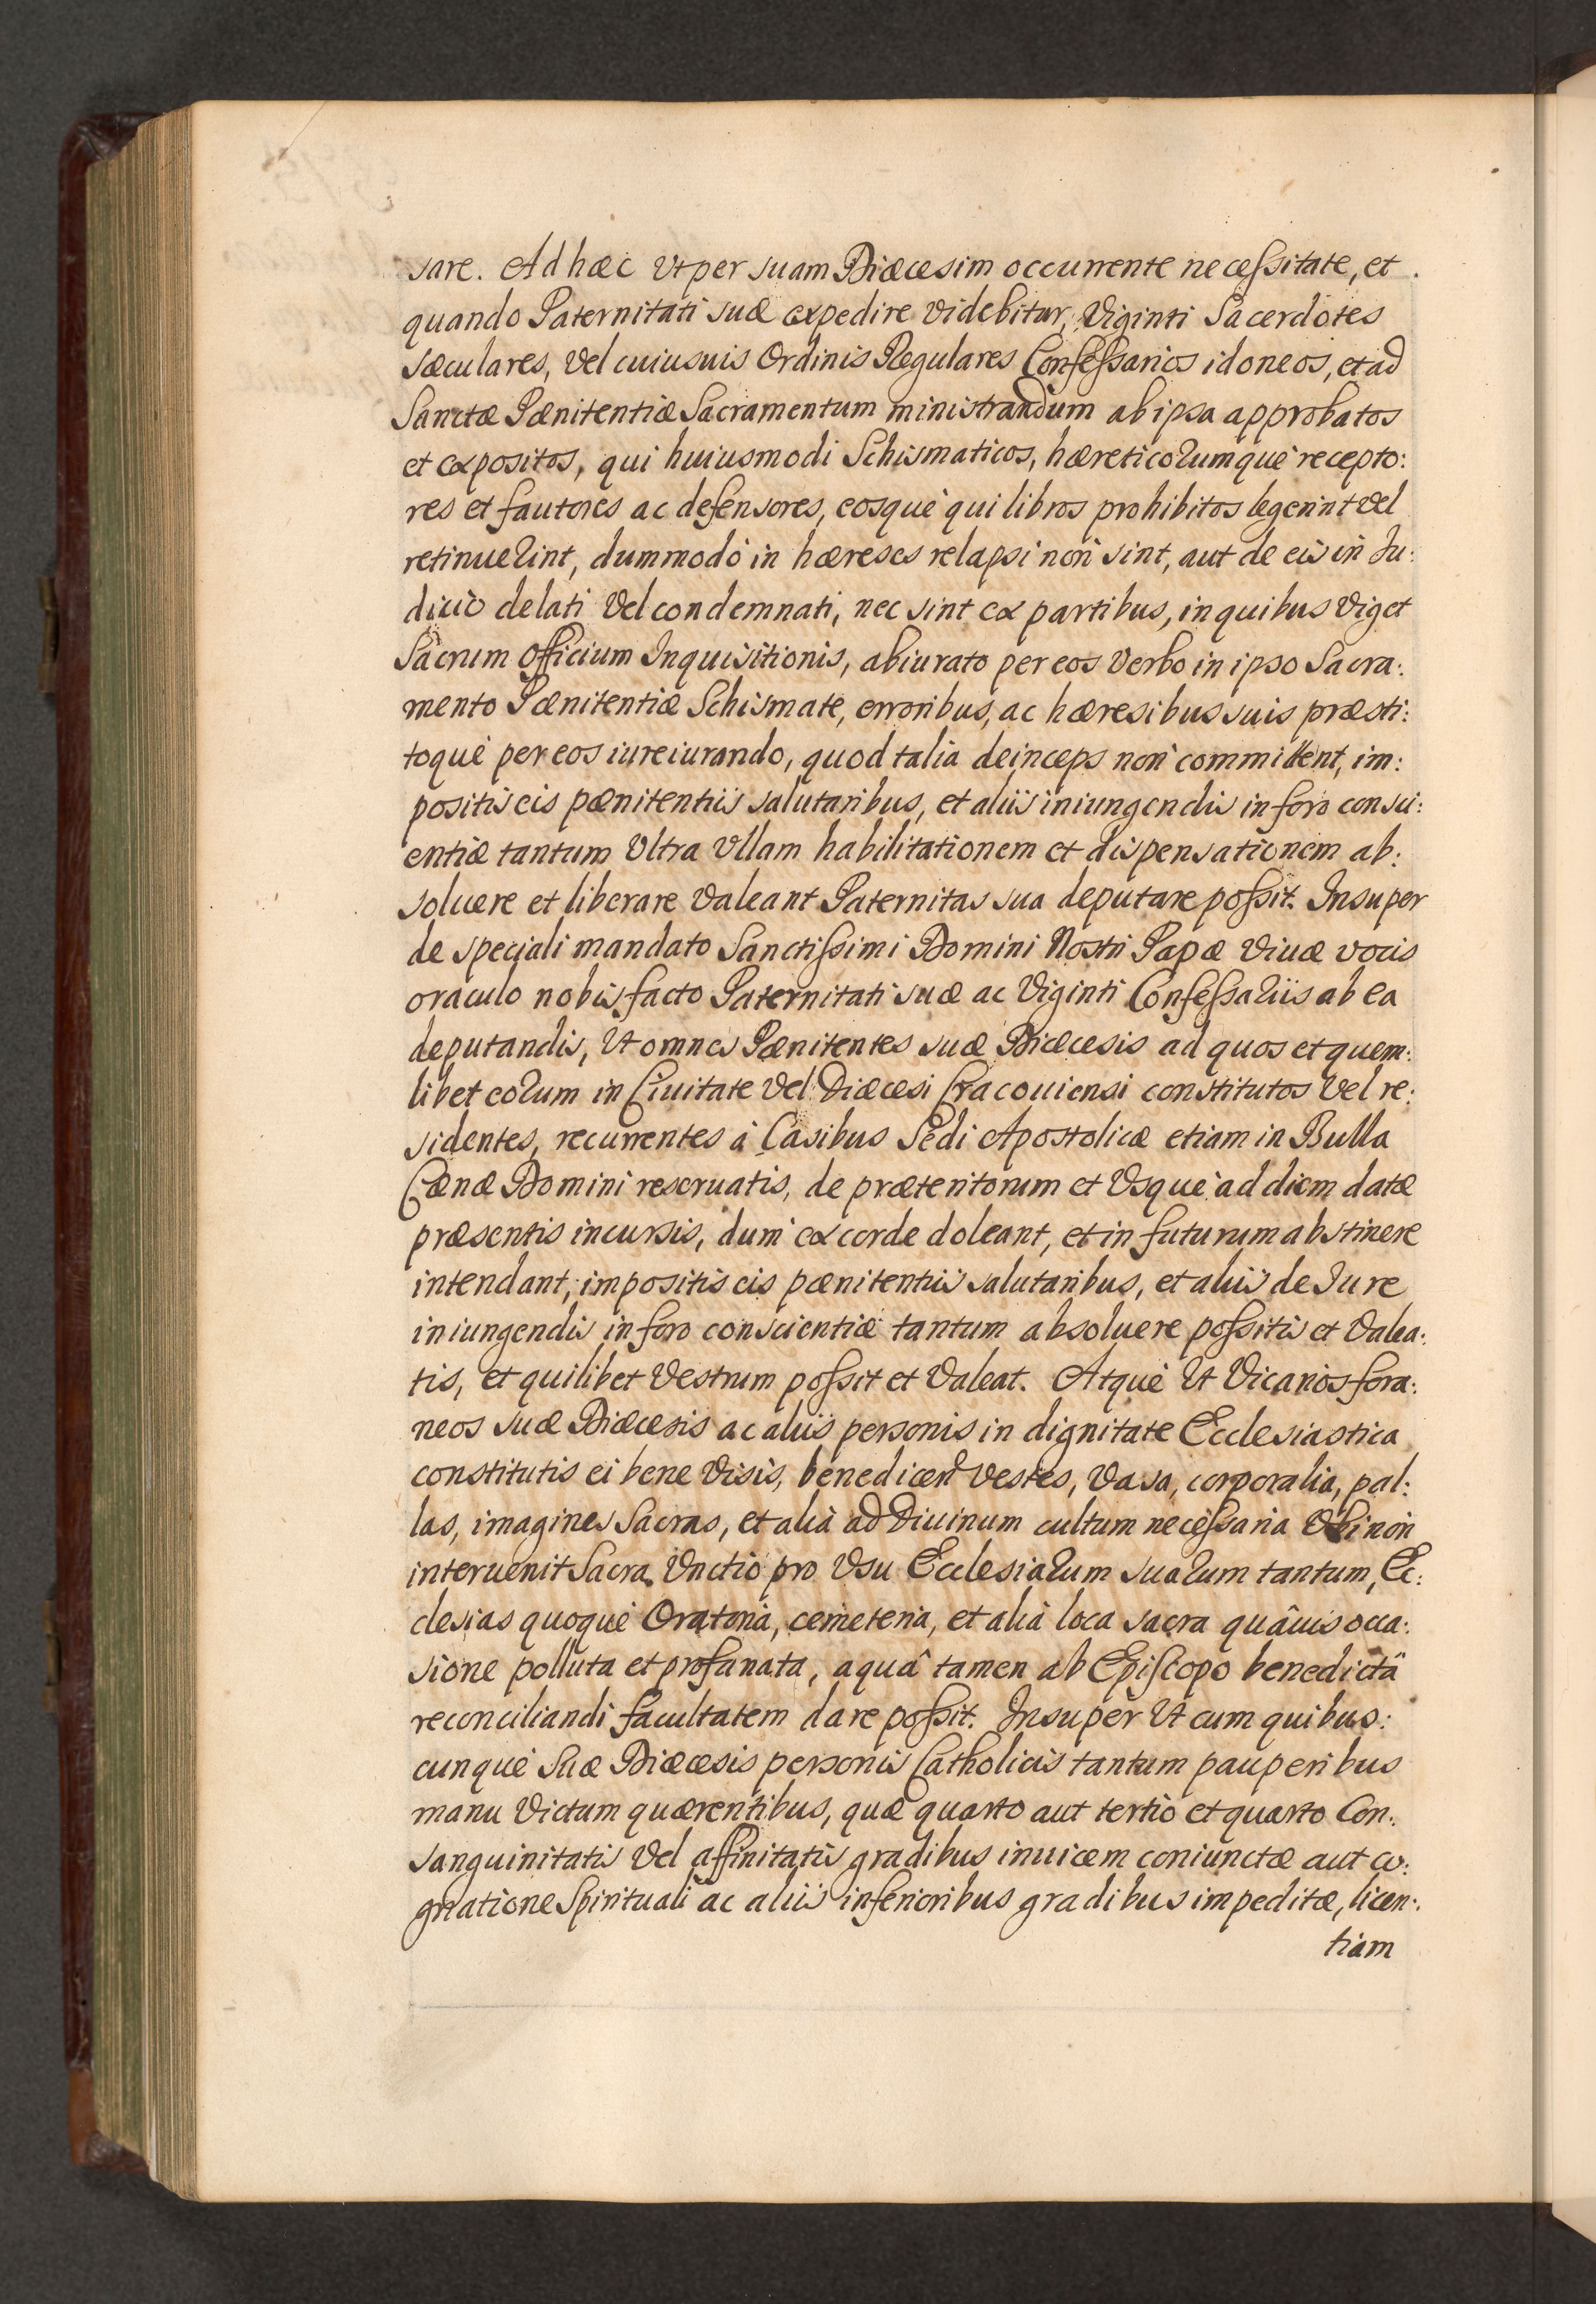 sare. Ad hæc Vt per suam Diæcesim occurrente necessitate, et
quando Paternitati suæ expedire Videbitur, Viginti Sacerdotes
sæculares, Vel cuiusuis Ordinis Regulares Confessarios idoneos, et ad
Sanctæ Pænitentiæ Sacramentum ministrandum ab ipsa approbatos
et expositos, qui huiusmodi Schismaticos, hæreticorumque recepto:
res et fautores ac defensores, eosque qui libros prohibitos legerint Vel
retinuerint, dummodo in hæreses relapsi non sint, aut de eis in Iu:
dicio delati Vel condemnati, nec sint ex partibus, in quibus Viget
Sacrum Officium Inquisitionis, abiurato per eos Verbo in ipso Sacra:
mento Pænitentiæ Schismate, erroribus, ac hæresibus suis præsti:
toque per eos iureiurando, quod talia deinceps non committent, im:
positis eis pænitentiis salutaribus, et aliis iniungendis in foro consci:
entiæ tantum Vltra Vllam habilitationem et dispensationem ab:
soluere et liberare Valeant Paternitas sua deputare possit. Insuper
de speciali mandato Sanctissimi Domini Nostri Papæ Viuæ vocis
oraculo nobis facto Paternitati suæ ac Viginti Confessariis ab ea
deputandis, Vt omnes Pænitentes suæ Diæcesis ad quos et quem:
libet eorum in Ciuitate Vel Diæcesi Cracouiensi constitutos Vel re:
sidentes, recurrentes à Casibus Sedi Apostolicæ etiam in Bulla
Cænæ Domini reseruatis, de præteritorum et Vsque ad diem datæ
præsentis incursis, dum ex corde doleant, et in futurum abstinere
intendant, impositis eis pænitentiis salutaribus, et aliis de Iure
iniungendis in foro conscientiæ tantum absoluere possitis et Valea:
tis, et quilibet Vestrum possit et Valeat. Atque Vt Vicarios fora:
neos suæ Diæcesis ac aliis personis in dignitate Ecclesiastica
constitutis ei bene Visis, benedicend Vestes, Vasa, corporalia, pal:
las, imagines Sacras, et alia ad Diuinum cultum necessaria Vbi non
interuenit Sacra Vnctio pro Vsu Ecclesiarum suarum tantum, Ec:
clesias quoque Oratoria, cemeteria, et alia loca sacra quâuis occa:
sione polluta et profanata, aquâ tamen ab Episcopo benedictâ
reconciliandi facultatem dare possit. Insuper Vt cum quibus:
cunque Suæ Diæcesis personis Catholicis tantum pauperibus
manu Victum quærentibus, quæ quarto aut tertio et quarto Con:
sanguinitatis Vel affinitatis gradibus inuicem coniunctæ aut co:
gnatione Spirituali ac aliis inferioribus gradibus impeditæ, licen:
tiam